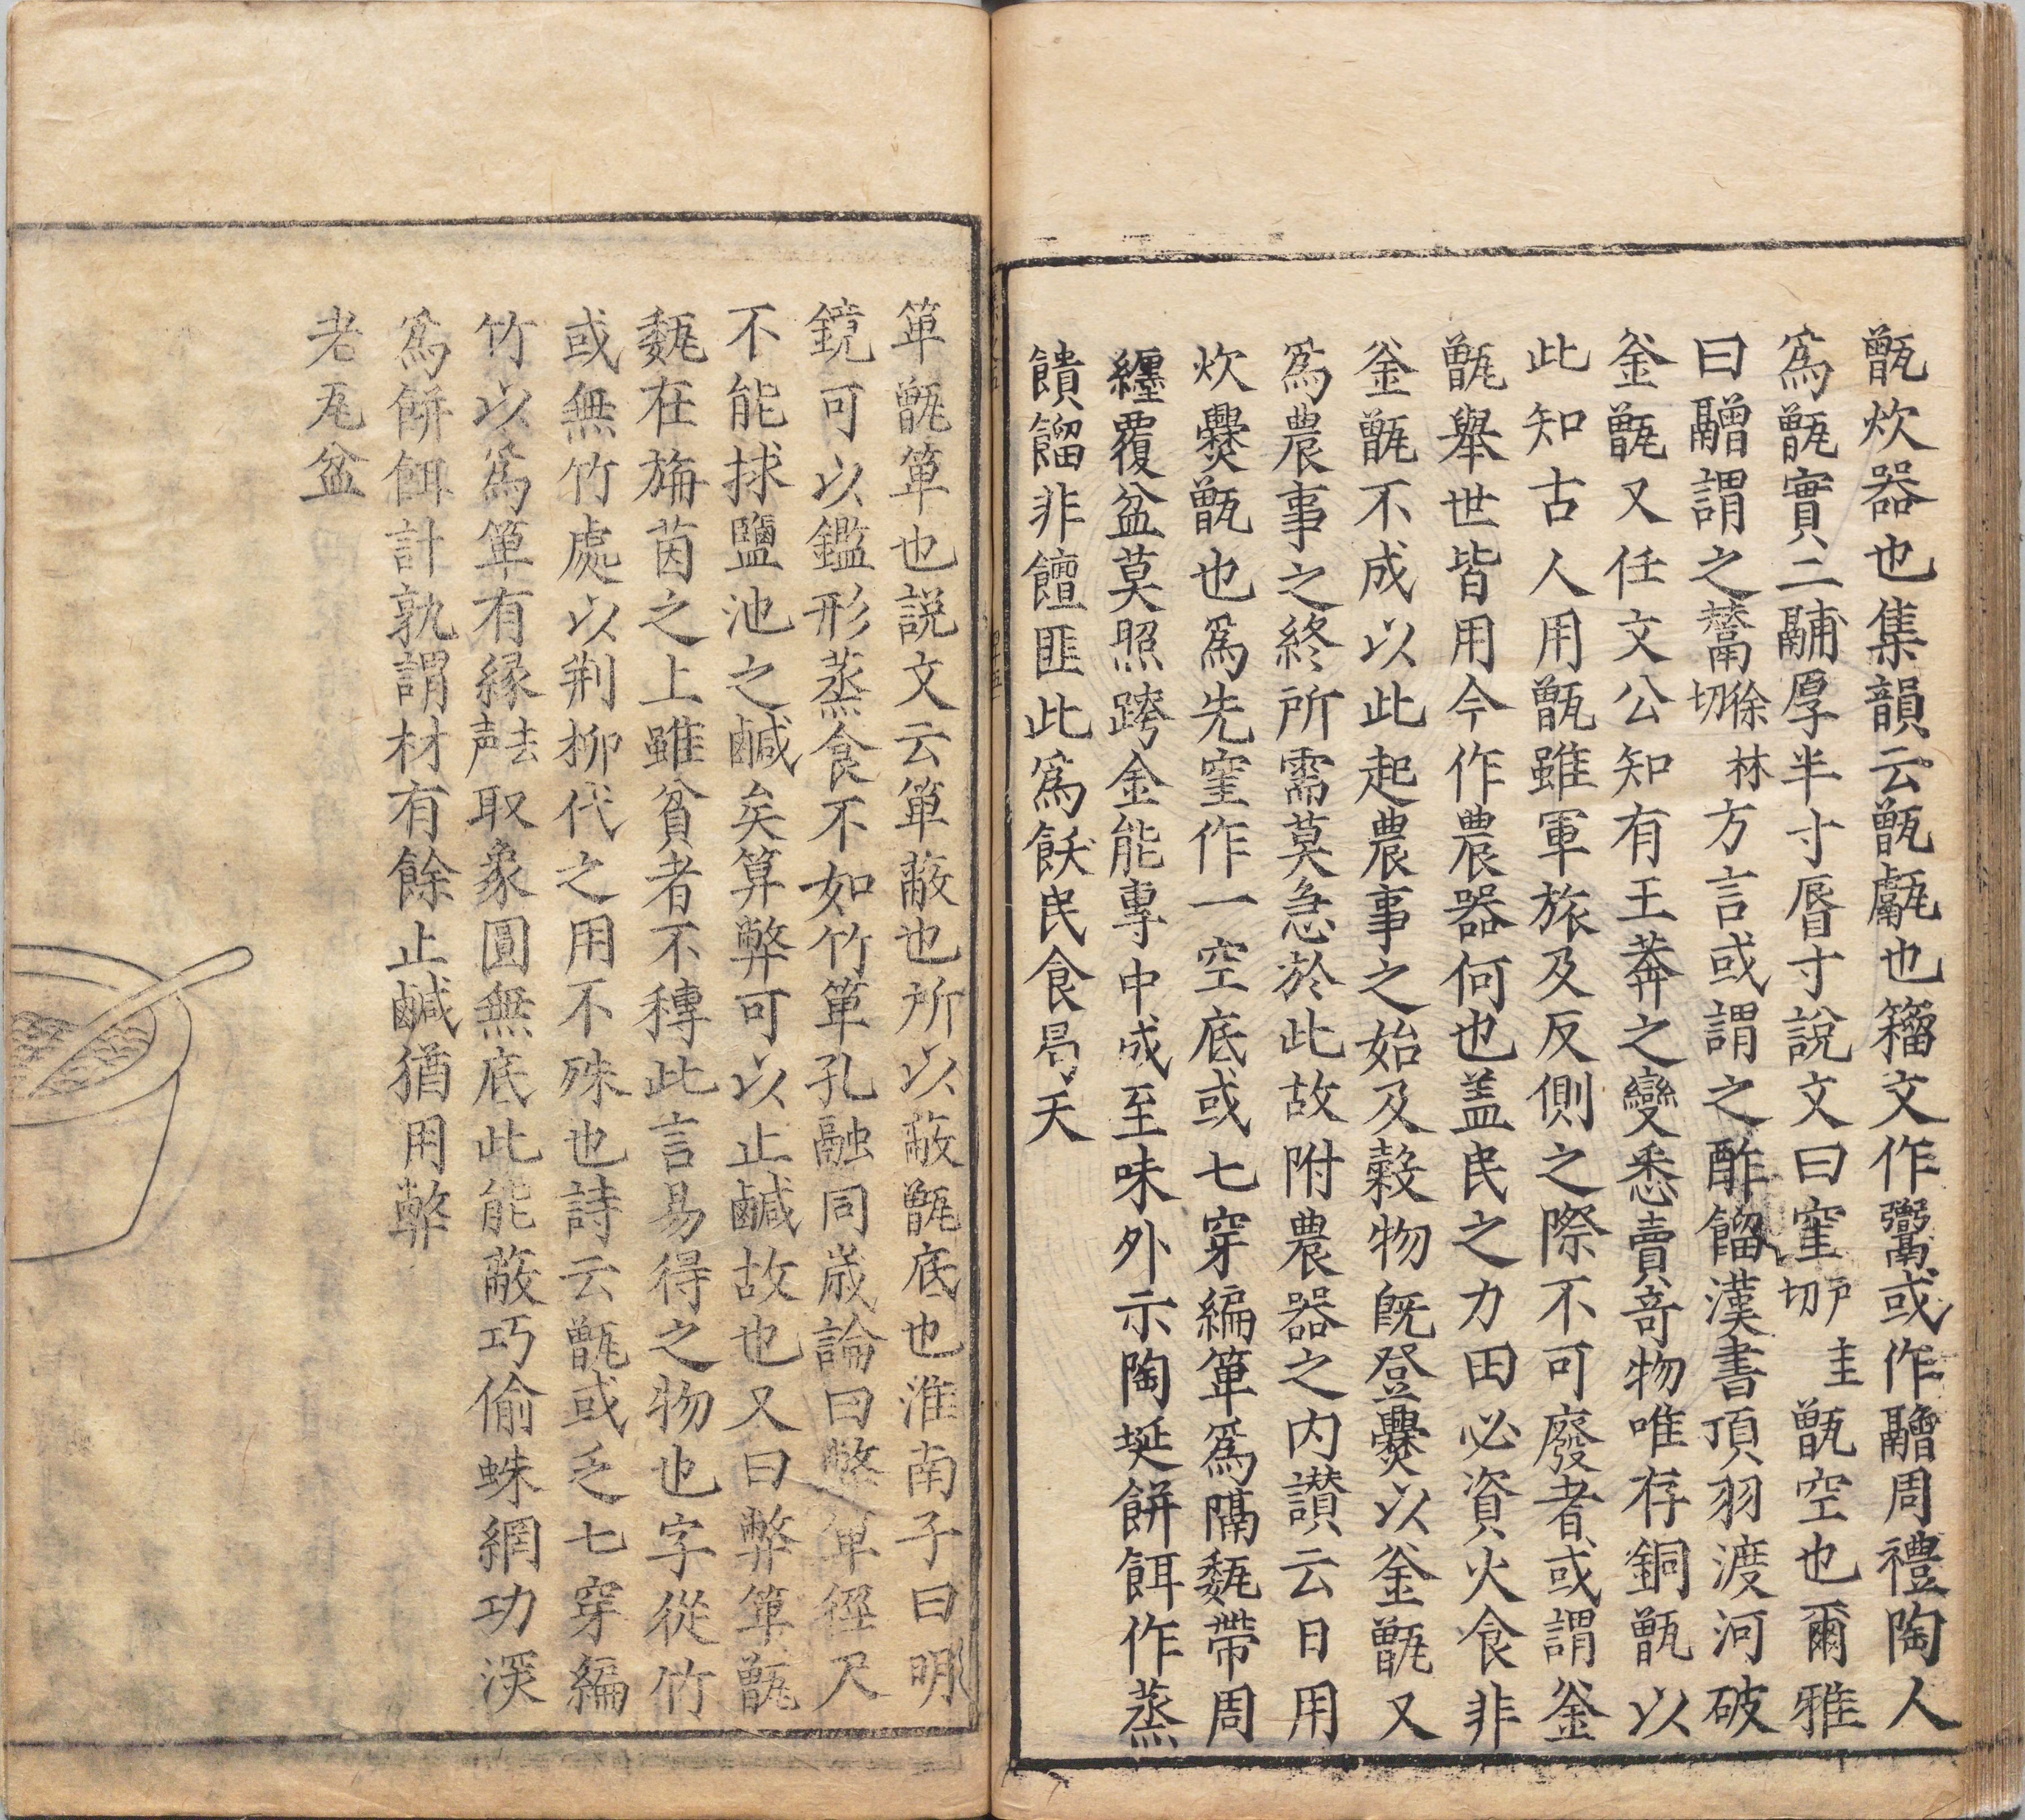 甑炊器也集韻云甑甗也籀文作鬻或作䰝周禮陶人
爲甑實二鬴厚半寸脣寸說文曰窐戶圭切甑空也爾雅
曰䰝謂之鬵徐林切方言或謂之酢餾漢書項羽渡河破
釜甑又任文公知有王莽之變悉賣竒物唯存銅甑以
此知古人用甑雖軍旅及反側之際不可廢者或謂釜
甑舉世皆用今作農器何也盖民之力田必資火食非
釜甑不成以此起農事之始及穀物旣登爨以釜甑又
爲農事之終所需莫急於此故附農器之内讃云日用
炊爨甑也爲先窐作一空底或七穿編箄爲隔甀帶周
纏覆盆莫照跨金能專中成至味外示陶埏餅餌作蒸
饙餾非饘匪此爲飫民食曷天
箄甑箄也説文云箄蔽也所以蔽甑底也淮南子曰明
鏡可以鑑形蒸食不如竹箄孔融同歲論曰弊箄徑尺
不能捄鹽池之鹹矣箄弊可以止鹹故也又曰弊箄甑
甀在旃茵之上雖貧者不摶此言易得之物也字從竹
或無竹處以荆柳代之用不殊也詩云甑或乏七穿編
竹以爲箄有縁去声取象圓無底此能蔽巧偷蛛網功深
爲餅餌計孰謂材有餘止鹹猶用弊
老瓦盆